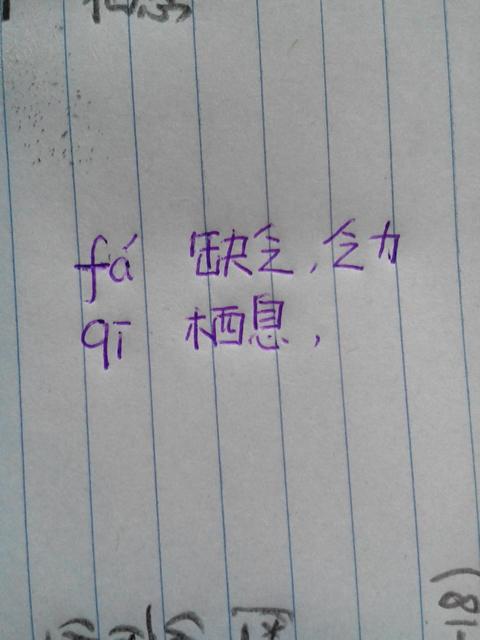 fá 缺乏,乏力
qī 栖息,
18)